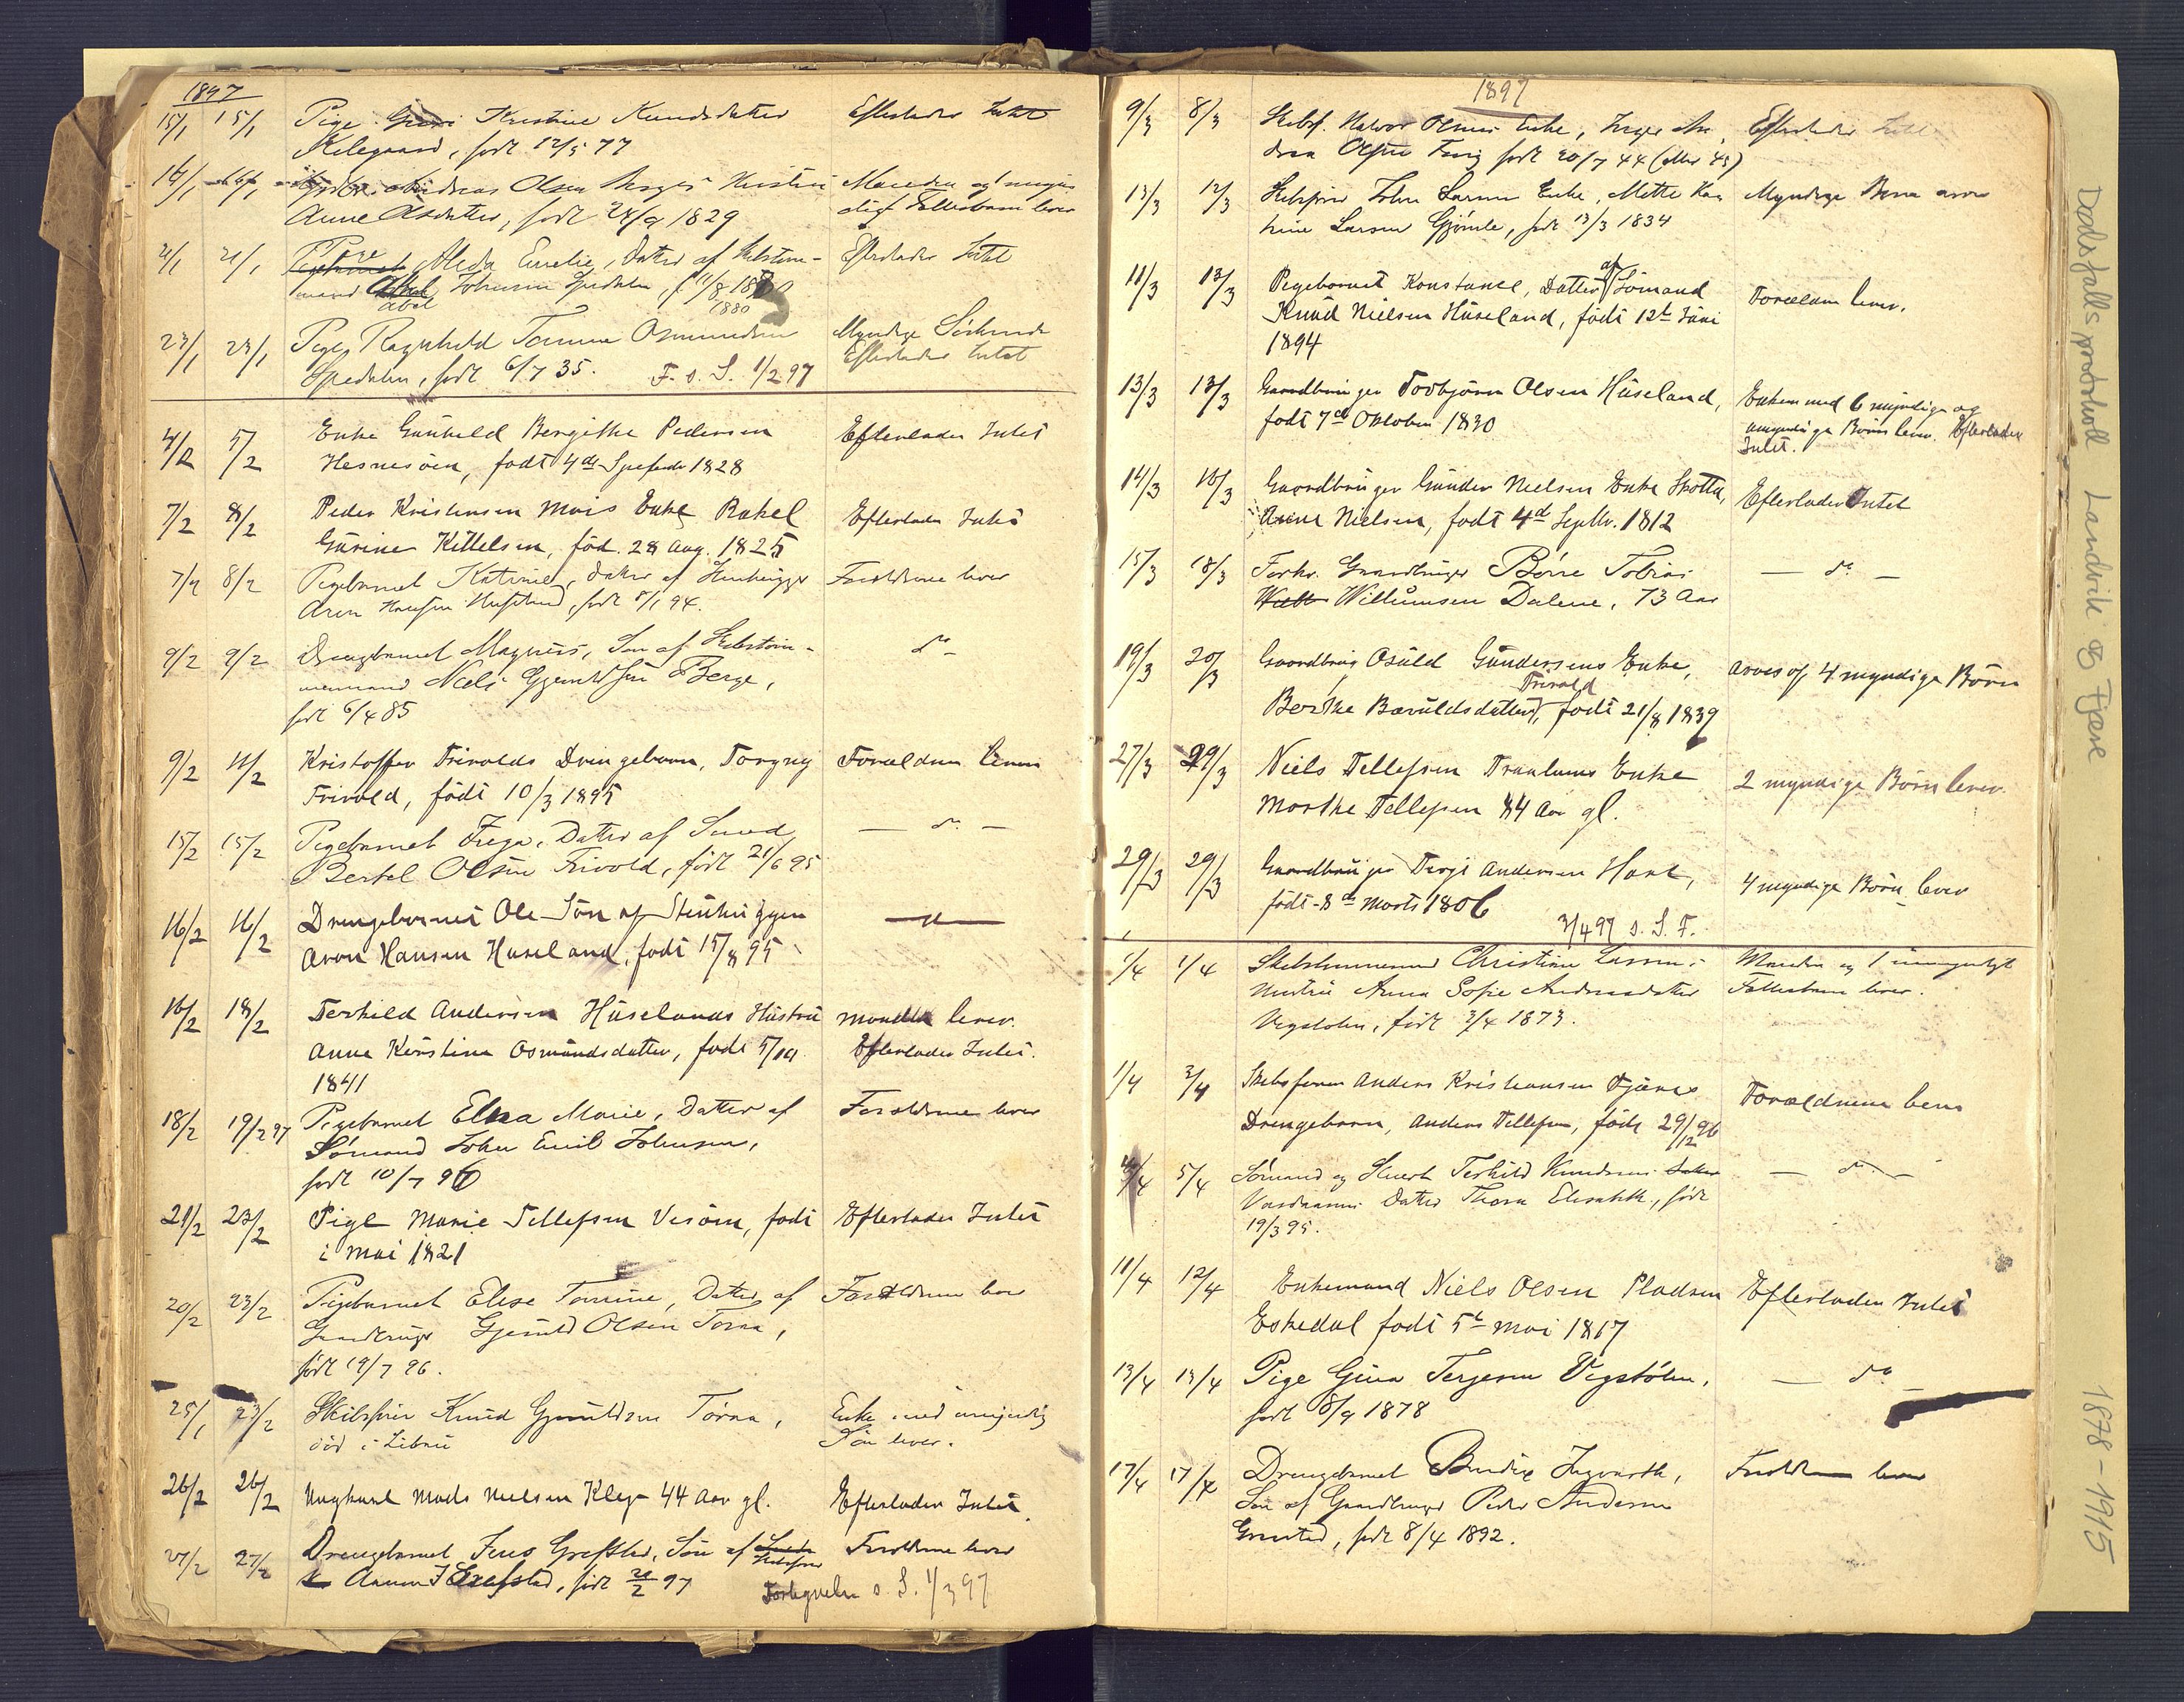 1897
15/1 15/1 Pige Kristine Knudsdatter Efterlader Intet
Kilegaard, født 12/5 77
16/1 16/1 Andreas Olsen Hustru Manden og 1
Anne Olsdatter, født 24/9 1829 Fællesbarn lever
21/1 21/1 Pige Alida Emilie, Datter af Efterlader Intet
Abel Johnsen f. 11/8 1880
1880
23/1 23/1 Pige Ragnhild Tomine Osmundsen Myndige Søskende
Spedalen, født 6/7 35. F. s. S. 1/2 97 Efterlader Intet
4/2 5/2 Enke Gunhild Bergithe Pedersen Efterlader Intet
Hesnesøen, født 4de 1828
7/2 8/2 Peder Kristensen Mois Enke Rakel Efterlader Intet
Gurine Kittelsen, fød. 28 Aug. 1825
7/2 8/2 Pigebarnet Katrine, Datter af Stenhugger Forældrene lever
Aren Hansen Huseland, født 8/1 94.
9/2 9/2 Drengebarnet Magnus, Søn af Skibstøm- do
mermand Niels Gjeruldsen Berge,
født 6/4 85
9/2 11/2 Kristoffer Trivolds Drengebarn, Torgny Forældrene lever
Trivold, født 10/3 1895
15/2 15/2 Pigebarnet Inga, Datter af Smed — do. —
Bertel Olsen Trivold, født 21/6 95
16/2 16/2 Drengebarnet Ole Søn af Stenhuggeren — " —
Aron Hansen Huseland, født 15/8 95
16/2 18/2 Terkild Andersen Huselands Hustru Manden lever.
Anne Kirstine Osmundsdatter, født 5/10 Efterlader Intet.
1841
18/2 19/2 97 Pigebarnet Elna Marie, Datter af Forældrene lever
Sømand John Emil Johnsen,
født 10/7 96
21/2 23/2 Pige Marie Tellefsen Vesøen, født Efterlader Intet
i Mai 1821
20/2 23/2 Pigebarnet Elise Tomine, Datter af Forældrene lever
Gaardbruger Gjeruld Olsen Tøraa,
født 19/7 96.
25/1 23/2 Skibsfører Knud Gjeruldsen Tøraa, Enke med umyndig
død i Søn lever.
26/2 26/2 Ungkarl Mads Nielsen Klep 44 Aar gl. Efterlader Intet.
27/2 27/2 Drengebarnet Jens Grefstad, Søn af Skibsfører Forældrene lever
Grefstad, født 21/2 97 Fortegnelse s. S. 1/3 97
1897
9/3 8/3 Skibsf. Halvor Olsens Enke, Inger An Efterlader Intet
drea Olsen født 20/7 44 (eller 45)
13/3 12/3 Skibsfører John Larsens Enke, Mette Ka Myndige Børn arver
trine Larsen Gjømle, født 13/3 1834
11/3 13/3 Pigebarnet Konstance, Datter af Sømand Forældrene lever.
Knud Nielsen Huseland, født 12te Juni
1894
13/3 13/3 Gaardbruger Torbjørn Olsen Huseland, Enken med 6 myndige og
født 7de Oktober 1830 umyndige Børn lever. Efterlader
Intet.
14/3 16/3 Gaardbruger Gunder Nielsen Enke Efterlader Intet
Anne Nielsen, født 4de Septbr. 1812
15/3 18/3 Forhv. Gaardbruger Børre Tobias — do —
Willumsen Dalene, 73 Aar
19/3 20/3 Gaardbrug Osuld Gundersens Enke, arves af 4 myndige Børn
Trivold
Berthe Baruldsdatter, født 21/8 1839
27/3 29/3 Niels Tellefsen Enke 2 myndige Børn lever
Marthe Tellefsen 84 Aar gl.
29/3 29/3 Gaardbruger Terje Andersen Hart, 4 myndige Børn lever
født 8de Marts 1806
3/4 97 s. S. F.
1/4 1/4 Christian Larsens Manden og 1 umyndigt
Hustru Anna Sofie Andreasdatter Fællesbarn lever.
Vegstølen, født 3/4 1873.
1/4 3/4 Skibsfører Anders Kristiansen Fjæres Forældrene lever
Drengebarn, Anders Tellefsen, født 29/12 96
5/4 Sømand og Terkild Knudsens — do. —
Datter Thora Elisabeth, født
19/3 95.
11/4 12/4 Enkemand Niels Olsen Pladsen Efterlader Intet
Eskedal født 5te Mai 1817
13/4 13/4 Pige Gina Terjesen Vegstølen, — do —
født 8/9 1878
17/4 17/4 Drengebarnet Ingvarth, Forældrene lever
Søn af Gaardbruger Peder Andersen
født 8/4 1892.
Dødsfallsprotokoll Landvik og Fjære 1878-1915